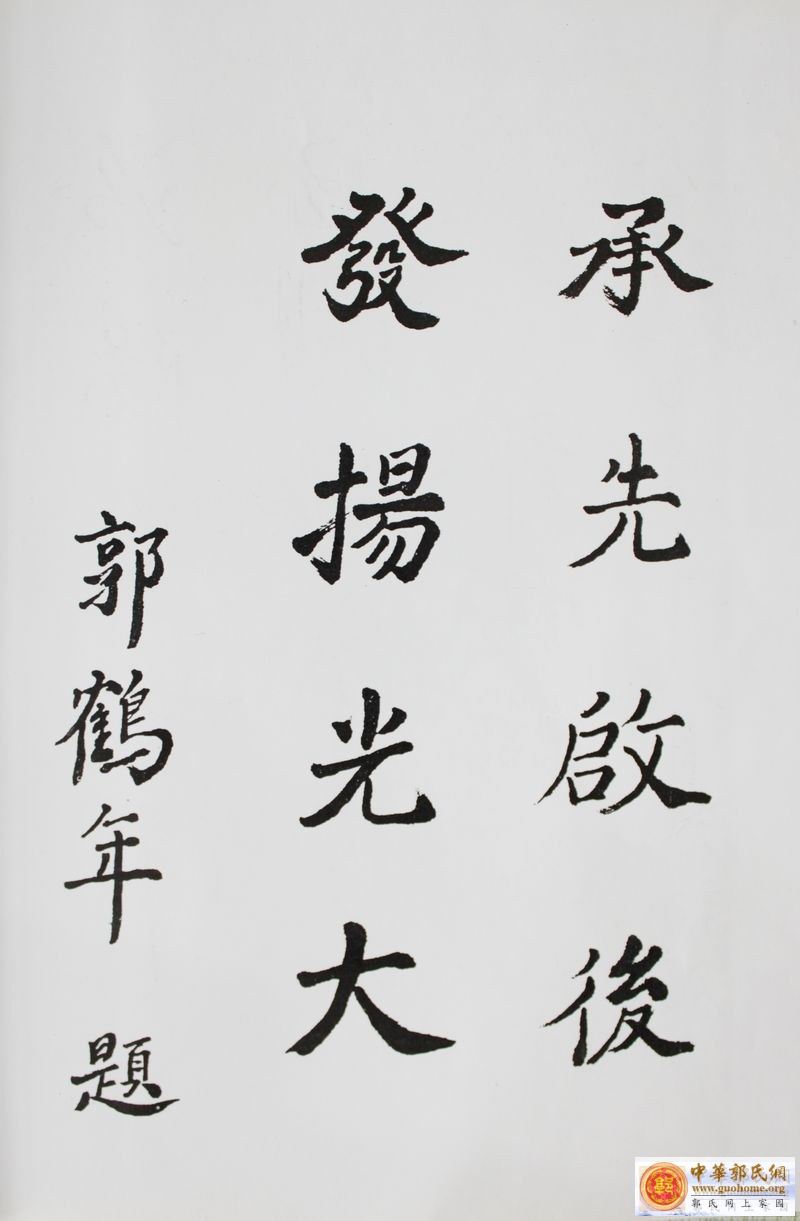 承先啟後
發揚光大
郭鶴年 題
中華郭氏網
www.guohome.org
郭氏网上家园